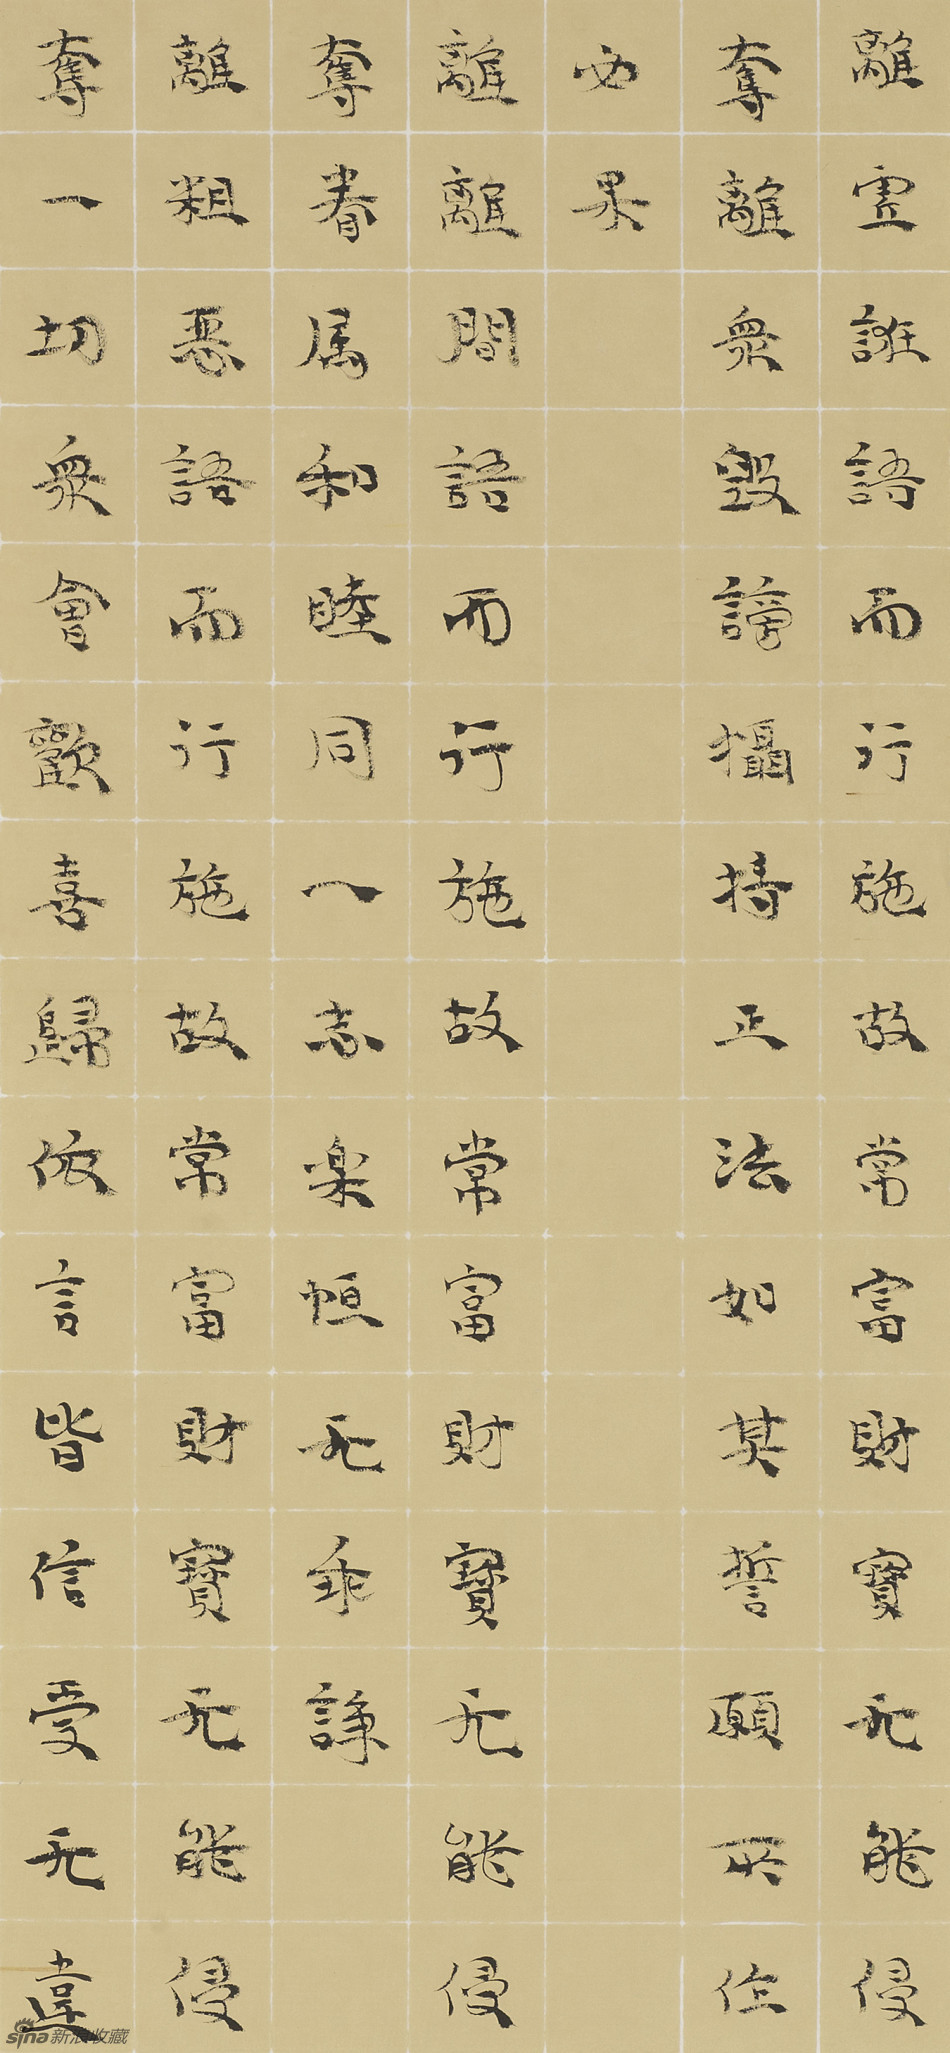 離虛誑語而行施故常富財寶无能侵
奪離衆毀謗攝持正法如其誓願所作
必果
離離間語而行施故常富財寶无能侵
奪眷属和睦同一志楽恒无乖諍
離粗惡語而行施故常富財寶无能侵
奪一切衆會歡喜歸依言皆信受无違
sina 新浪收藏